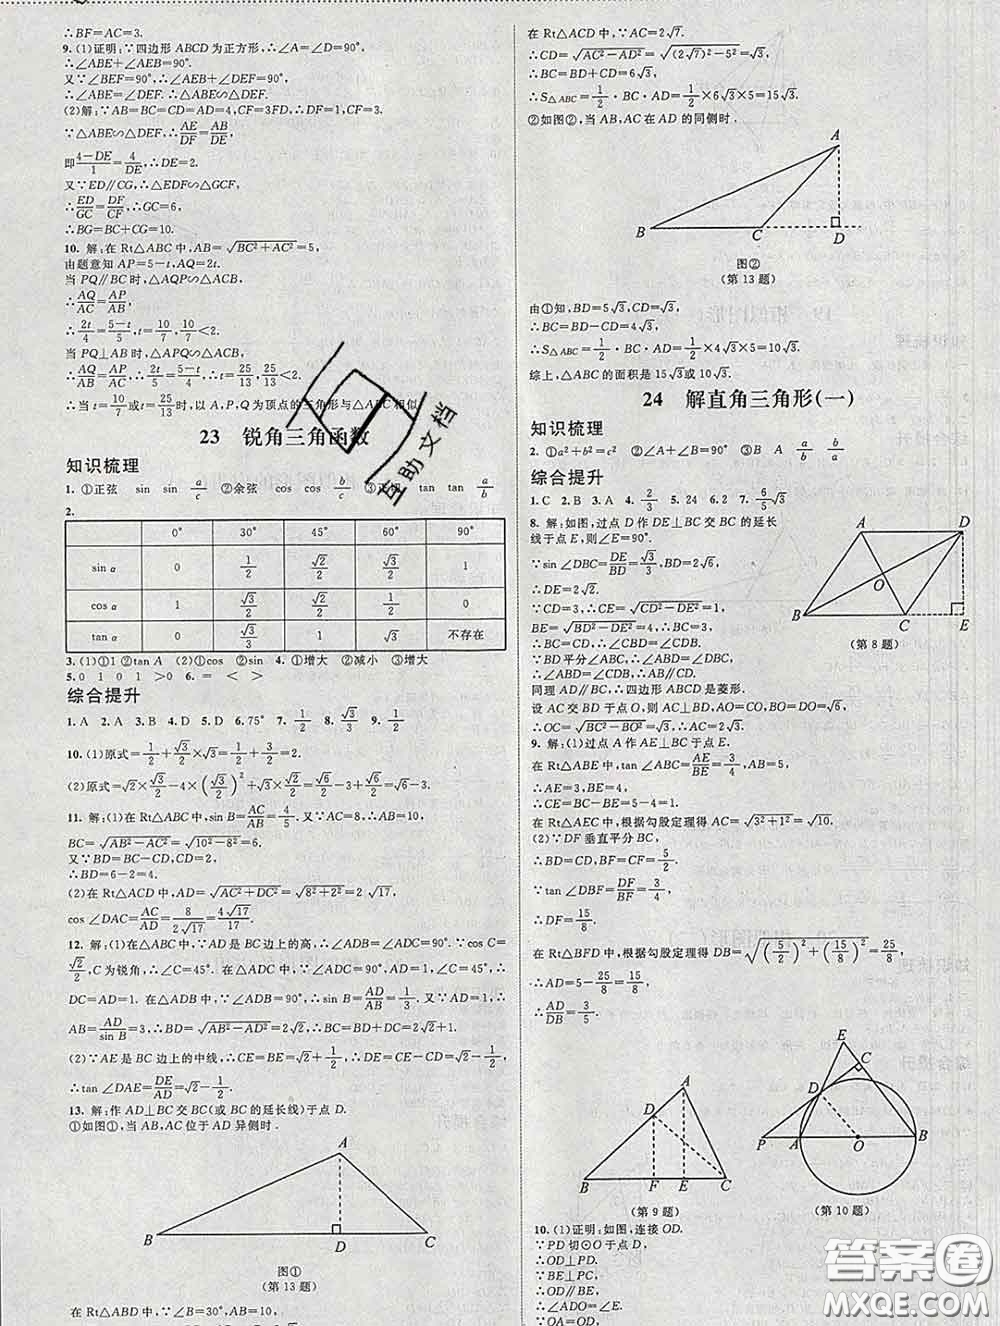 ∴BF=AC=3.
9. (1)证明:∵四边形 ABCD 为正方形,∴∠A=∠D=90°.
∴∠ABE+∠AEB=90°.
又∵∠BEF=90°,∴∠AEB+∠DEF=90°.
∴∠ABE=∠DEF. ∴△ABE∽△DEF.
(2)解:∵AB=BC=CD=AD=4,CF=3FD,∴DF=1,CF=3.
∵△ABE∽△DEF,∴AE/DF=AB/DE.
即(4-DE)/1=4/DE,∴DE=2.
又∵ED∥CG,∴△EDF∽△GCF,
∴ED/GC=DF/CF,∴GC=6,
∴BG=BC+CG=10.
10. 解:在 Rt△ABC 中,AB=√(BC²+AC²)=5,
由题意知 AP=5-t,AQ=2t.
当 PQ∥BC 时,△AQP∽△ACB,
∴AQ/AC=AP/AB,
∴2t/4=(5-t)/5,∴t=10/7,10/7<2.
当 PQ⊥AB 时,△APQ∽△ACB.
∴AQ/AB=AP/AC,∴2t/5=(5-t)/4,∴t=25/13,25/13<2.
∴当 t=10/7或25/13时,以 A,P,Q 为顶点的三角形与△ABC 相似.
23 锐角三角函数
知识梳理
1. ①正弦 sin sin a/c ②余弦 cos cos b/c ③正切 tan tan a/b
2.
0° 30° 45° 60° 90°
sin α 0 1/2 √2/2 √3/2 1
cos α 1 √3/2 √2/2 1/2 0
tan α 0 √3/3 1 √3 不存在
3. (1)①1 ②tan A (2)①cos ②sin 4. ①增大 ②减小 ③增大
5. 0 1 0 1 >0 6. = < >
综合提升
1. A 2. A 3. B 4. D 5. D 6. 75° 7. 1/2 8. √3/3 9. 1/2
10. (1)原式=1/2+√3/2×√3=1/2+3/2=2.
(2)原式=√2×√2/2-4×(√3/2)²+√3×√3=1-3+3=1.
11. 解:(1)在 Rt△ABC 中,sin B=AC/AB=4/5. 又∵AC=8,∴AB=10,
BC=√(AB²-AC²)=√(10²-8²)=6.
又∵BD=BC-CD,
∴BD=6-2=4.
(2)在 Rt△ACD 中,AD=√(AC²+DC²)=√(8²+2²)=2√17,
cos ∠DAC=AC/AD=8/(2√17)=4√17/17.
12. 解:(1)在△ABC 中,∵AD 是 BC 边上的高,∴∠ADC=90°. ∵cos C=
√2/2,C 为锐角,∴∠C=45°. 在△ADC 中,∵∠ADC=90°,∠C=45°,∴
DC=AD=1. 在△ADB 中,∵∠ADB=90°,∴sin B=AD/AB=1/3. 又∵AD=1,∴
AB=AD/sin B=3,∴BD=√(AB²-AD²)=2√2,∴BC=BD+DC=2√2+1.
(2)∵AE 是 BC 边上的中线,∴CE=BE=√2+1/2,∴DE=CE-CD=√2-1/2,
∴tan ∠DAE=DE/AD=√2-1/2.
13. 解:作 AD⊥BC 交 BC(或 BC 的延长线)于点 D.
①如图①,当 AB,AC 位于 AD 异侧时.
A
B D C
图①
(第 13 题)
在 Rt△ABD 中,∵∠B=30°,AB=10,
在 Rt△ACD 中,∵AC=2√7,
∴CD=√(AC²-AD²)=√((2√7)²-5²)=√3.
∴BC=BD+CD=6√3,
∴S△ABC=1/2·BC·AD=1/2×6√3×5=15√3.
②如图②,当 AB,AC 在 AD 的同侧时.
A
B C D
图②
(第 13 题)
由①知,BD=5√3,CD=√3,
∴BC=BD-CD=4√3,
∴S△ABC=1/2·BC·AD=1/2×4√3×5=10√3.
综上,△ABC 的面积是 15√3或 10√3.
24 解直角三角形(一)
知识梳理
2. ①a²+b²=c² ②∠A+∠B=90° ③B A a/b b/a
综合提升
1. C 2. B 3. A 4. 2/3 5. 24 6. 2 7. 6/5√3
8. 解:如图,过点 D 作 DE⊥BC 交 BC 的延长
线于点 E,则∠E=90°.
∵sin ∠DBC=DE/BD=√3/3,BD=2√6,
∴DE=2√2.
∵CD=3,∴CE=√(CD²-DE²)=1,
BE=√(BD²-DE²)=4,∴BC=3,
∴BC=CD,∴∠CBD=∠CDB.
∵BD 平分∠ABC,∴∠ABD=∠DBC,
∴∠ABD=∠CDB,∴AB∥CD,
同理 AD∥BC,∴四边形 ABCD 是菱形.
设 AC 交 BD 于点 O,则 AC⊥BD,AO=CO,BO=DO=√6,
∴OC=√(BC²-BO²)=√3,∴AC=2√3.
A D
O
B C E
(第 8 题)
9. 解:(1)过点 A 作 AE⊥BC 于点 E.
在 Rt△ABE 中,tan ∠ABC=AE/BE=3/4,AB=5,
∴AE=3,BE=4,
∴CE=BC-BE=5-4=1.
在 Rt△AEC 中,根据勾股定理得 AC=√(3²+1²)=√10.
(2)∵DF 垂直平分 BC,
∴BD=CD,BF=CF=5/2,
∵tan ∠DBF=DF/BF=3/4,
∴DF=15/8.
在 Rt△BFD 中,根据勾股定理得 DB=√((5/2)²+(15/8)²)=25/8,
∴AD=5-25/8=15/8,
∴AD/DB=3/5.
A
D
B F E C
(第 9 题)
E
C
D
P A O B
(第 10 题)
10. (1)证明:如图,连接 OD.
∵PD 切⊙O 于点 D,
∴OD⊥PD.
∵BE⊥PC,
∴OD∥BE,
∴∠ADO=∠E.
∵OA=OD,
互助文档
答案圈
MXQE.COM